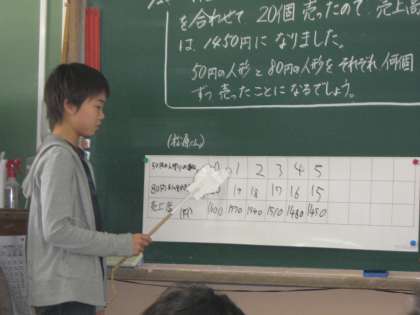 を合わせて 20個 売ったので、売上高
は、1450円に なりました。
50円の人形と 80円の人形を それぞれ 何個
ずつ 売った ことに なるでしょう。
1 2 3 4 5
19 18 17 16 15
売上高 (円) 1600 1570 1540 1510 1480 1450